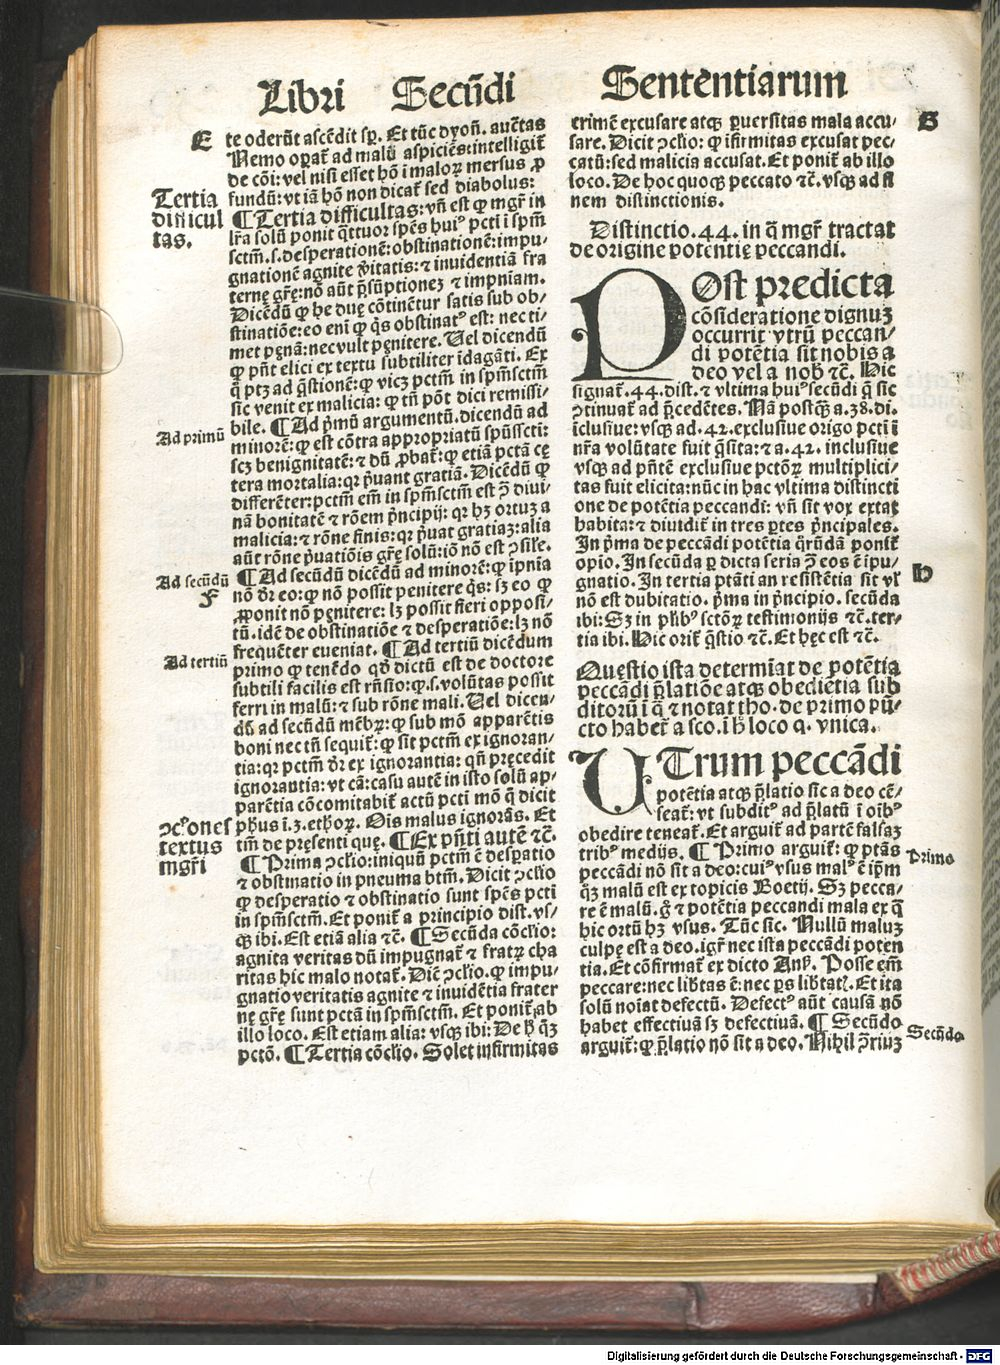 Libri Secūdi Sententiarum
E
te oderūt ascēdit sp̱. Et tūc dyoñ. auc̄tas
Nemo opat̄ ad malū aspiciēs:intelligit̄
de cōi: vel nisi esset hō i maloꝝ mersus ꝓ
fundū: vt iā hō non dicat̄ sed diabolus:
Tertia
difficul
tas.
¶ Tertia difficultas: vñ est ꝙ mgr̄ in
lr̄a solū ponit q̄ttuor spēs huiꝰ pcti ī spm̄
sctm̄.s.desperationē: obstinationē: impu⸗
gnationē agnite v̄itatis: ⁊ inuidentiā fra
ternę gr̄ę: nō aūt p̄sūptionez ⁊ impniam.
Dicēdū ꝙ he duę cōtinētur satis sub ob⸗
stinatiōe: eo eni ꝙ q̄s obstinatꝰ est: nec ti⸗
met pęnā: nec vult pęnitere. Uel dicendū
ꝙ pn̄t elici ex textu subtiliter īdagāti. Ex
q̄ ptꝫ ad q̄stionē: ꝙ vicꝫ pctm̄ in spm̄sctm̄
sic venit ex malicia: ꝙ tn̄ pōt dici remissi⸗
bile. ¶ Ad p̄mū argumentū. dicendū ad
Ad primū
minorē: ꝙ est cōtra appropriatū spūssctī:
scꝫ benignitatē: ⁊ dū ꝓbat̄: ꝙ etiā pctā cę
tera mortalia: qꝛ p̄uant gratiā. Dicēdū ꝙ
differēter: pctm̄ em̄ in spm̄sctm̄ est ꝯ̄ diui⸗
nā bonitatē ⁊ rōem p̄ncipij: qꝛ hꝫ ortuꝫ a
malicia: ⁊ rōne finis: qꝛ p̄uat gratiaꝫ: alia
aūt rōne p̄uatiōis gr̄ę solū: iō nō est ꝯsile.
¶ Ad secūdū dicēdū ad minorē: ꝙ ipnia
Ad secūdū
F
nō dr̄ eo: ꝙ nō possit penitere q̄s: sꝫ eo ꝙ
ꝓponit nō pęnitere: lꝫ possit fieri opposi⸗
tū. idē de obstinatiōe ⁊ desperatiōe: lꝫ nō
frequēter eueniat. ¶ Ad tertiū dicēdum
Ad tertiū
primo ꝙ tenēdo qd̄ dictū est de doctore
subtili facilis est rn̄sio: ꝙ.s.volūtas possit
ferri in malū: ⁊ sub rōne mali. Uel dicen⸗
dū ad secūdū mēbꝝ: ꝙ sub mō apparētis
boni nec tn̄ sequit̄: ꝙ sit pctm̄ ex ignoran⸗
tia: qꝛ pctm̄ dr̄ ex ignorantia: qn̄ pręcedit
ignorantia: vt cā: casu autē in isto solū ap⸗
parētia cōcomitabit̄ actū pcti mō q̄ dicit
ꝯcl̄ones
textus
mgr̄i
phus i.3. ethoꝝ. Ois malus ignorās. Et
tm̄ de pręsenti quę. ¶ Ex pn̄ti autē ⁊c̄.
¶ Prima ꝯclio: iniquū pctm̄ ē despatio
⁊ obstinatio in pneuma btm̄. Dicit ꝯclio
ꝙ desperatio ⁊ obstinatio sunt spēs pcti
in spm̄sctm̄. Et ponit̄ a principio dist. vs⸗
qꝫ ibi. Est etiā alia ⁊c̄. ¶ Secūda cōclio:
agnita veritas dū impugnat̄ ⁊ fratꝝ cha
ritas hic malo notat̄. Dic̄ ꝯclio. ꝙ impu⸗
gnatio veritatis agnite ⁊ inuidētia frater
nę gr̄ę sunt pctā in spm̄sctm̄. Et ponit̄ ab
illo loco. Est etiam alia: vsqꝫ ibi: De h̄ q̄ꝫ
pctō. ¶ Tertia cōclio. Solet infirmitas
crimē excusare atqꝫ puersitas mala accu⸗
G
sare. Dicit ꝯclio: ꝙ ifirmitas excusat pec⸗
catū: sed malicia accusat. Et ponit̄ ab illo
loco. De hoc quoqꝫ peccato ⁊c̄. vsqꝫ ad fi
nem distinctionis.
Distinctio. 44. in q̄ mgr̄ tractat
de origine potentię peccandi.
POst predicta
cōsideratione dignuꝫ
occurrit vtrū peccan⸗
di potētia sit nobis a
deo vel a nob̄ ⁊c̄. Hic
signat̄. 44. dist. ⁊ vltima huiꝰ secūdi q̄ sic
ꝯtinuat̄ ad p̄cedētes. Nā postqꝫ a.38.di.
īclusiue: vsqꝫ ad.42.exclusiue origo pcti ī
nr̄a volūtate fuit q̄sita: ⁊ a.42. inclusiue
vsqꝫ ad pn̄tē exclusiue pctōꝝ multiplici⸗
tas fuit elicita: nūc in hac vltima distincti
one de potētia peccandi: vn̄ sit vox extat
habita: ⁊ diuidit̄ in tres ptes p̄ncipales.
In p̄ma de peccādi potētia q̄rūdā ponit̄
opio. In secūda p dicta seria ꝯ̄ eos ē ipu⸗
gnatio. In tertia ptāti an resistētia sit vl̄
H
nō est dubitatio. p̄ma in p̄ncipio. secūda
ibi: Sꝫ in plib̄ sctōꝝ testimonijs ⁊c̄.ter⸗
tia ibi. Hic orit̄ q̄stio ⁊c̄. Et hęc est ⁊c̄.
Quęstio ista determīat de potētia
peccādi p̄latiōe atqꝫ obedīetia sub
ditorū ī q̄ ⁊ notat̄ tho. de primo pū⸗
cto habet̄ a sco. ī h̄ loco q. vnica.
UTrum peccādi
potētia atqꝫ p̄latio sic a deo cē⸗
seat̄: vt subditꝰ ad p̄latū ī oībꝰ
obedire teneat̄. Et arguit̄ ad partē falsaꝫ
tribꝰ medijs. ¶ Primo arguit̄: ꝙ ptās
Primo
peccādi nō sit a deo: cuiꝰ vsus malꝰ ē ip̄m
q̄ꝫ malū est ex topicis Boetij. Sꝫ pecca⸗
re ē malū. g̊ ⁊ potētia peccandi mala ex q̄
hic ortū hꝫ vsus. Tūc sic. Nullū maluꝫ
culpę est a deo. igr̄ nec ista peccādi poten
tia. Et cōfirmat̄ ex dicto Anb̄. Posse em̄
peccare: nec lib̄tas ē: nec ps lib̄tatꝭ. Et ita
solū noīat defectū. Defectꝰ aūt causā nō
habet effectiuā sꝫ defectiuā. ¶ Secūdo
Secūdo
arguit̄: ꝙ p̄latio nō sit a deo. Nihil ꝯ̄riuꝫ
Digitalisierung gefördert durch die Deutsche Forschungsgemeinschaft - DFG